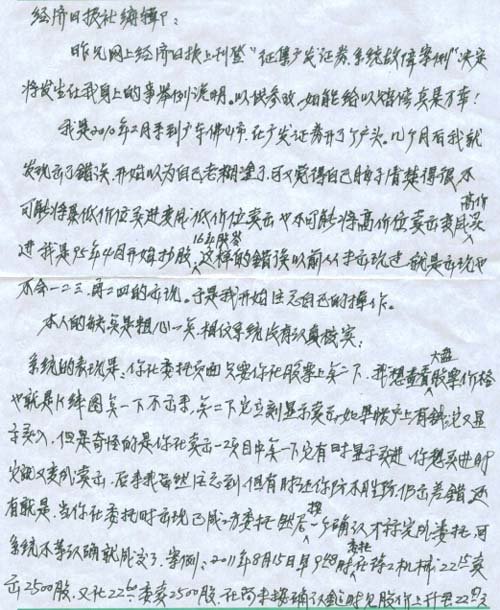 经济日报社编辑部:
昨见网上经济日报上刊登"征集广发证券系统故障案例"决定
将发生在我身上的事举例说明。以供参攷,如能给以赔偿真是万幸!
我是2010年2月来到广东佛山市,在广发证券开了个户头。几个月后我就
发现出了错误,开始以为自己老糊涂了,可又觉得自己脑子清楚得很,不
可能将最低价位卖进变成低价位卖出也不可能将高价位卖出变成高价买
进 我是95年4月开始抄股16年股答这样的错误以前从未出现过 就是出现也
不会一二三、再二四的出现。于是我开始注意自己的操作。
本人的缺点是粗心一点 相信系统没有认真核实:
系统的表现是:你在委托页面只要你在股票上点一下,我想查看大盘股票价格
也就是K线图点一下不出来,点二下它立刻显示卖出,如果帐户上有钱它又显
示买入,但是奇怪的是你在卖出一项目中点一下它有时显示买进 你想买进时
它又变成卖出 后来我虽然注意到 但有时还你防不胜防仍出差错 还
有就是:当你在委托时出现已成功委托 然后按一个确认才称完成委托,可
系统不等认确就成交了。案例:2011年8月15日早9时8分委托在徐工机械:22.15卖
出2500股,又在22 委卖2500股,在尚未按确认 时见股价上升要22.3